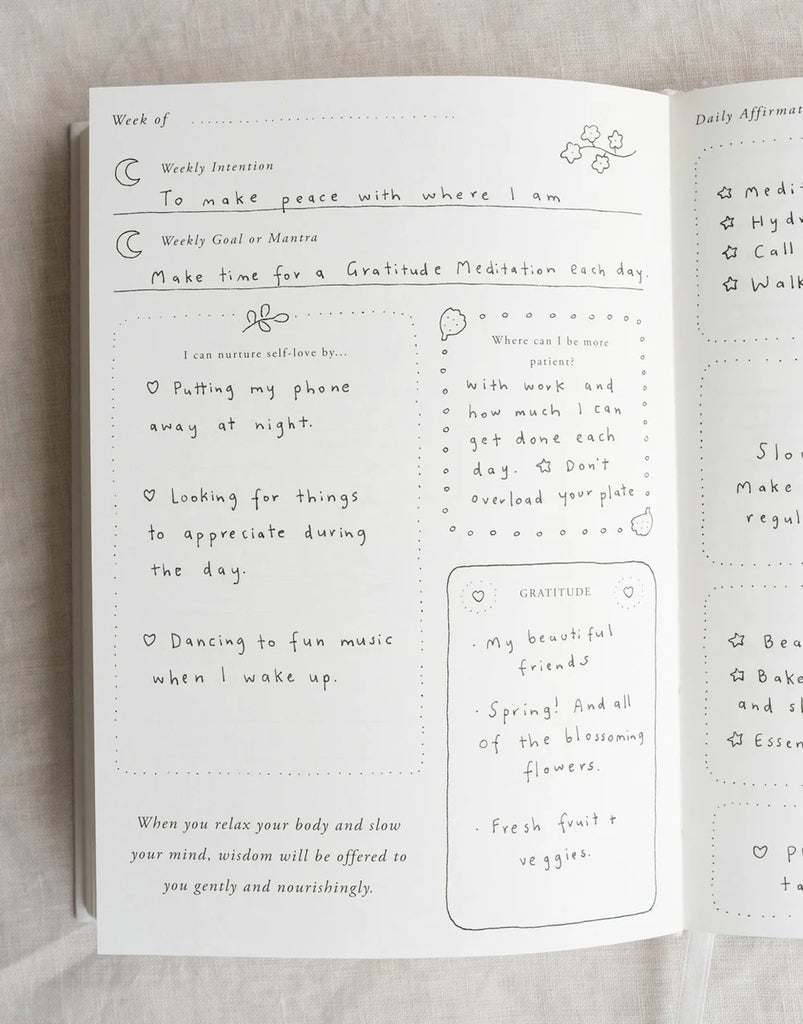 Week of
Weekly Intention
To make peace with where I am
Weekly Goal or Mantra
Make time for a Gratitude Meditation each day.
I can nurture self-love by...
Putting my phone
away at night.
Looking for things
to appreciate during
the day.
Dancing to fun music
when I wake up.
When you relax your body and slow
your mind, wisdom will be offered to
you gently and nourishingly.
Where can I be more
patient?
with work and
how much I can
get done each
day. Don't
overload your plate
GRATITUDE
· My beautiful
friends
· Spring! And all
of the blossoming
flowers.
· Fresh fruit +
veggies.
Daily
Call
Walk
Make
and